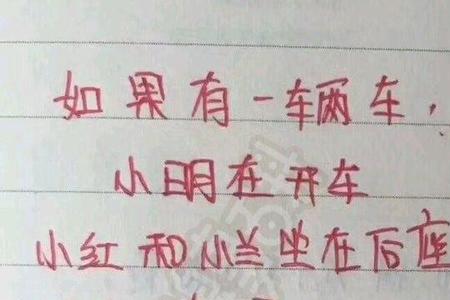 如果有一车辆车，
小明在开车
小红和小兰坐在后座